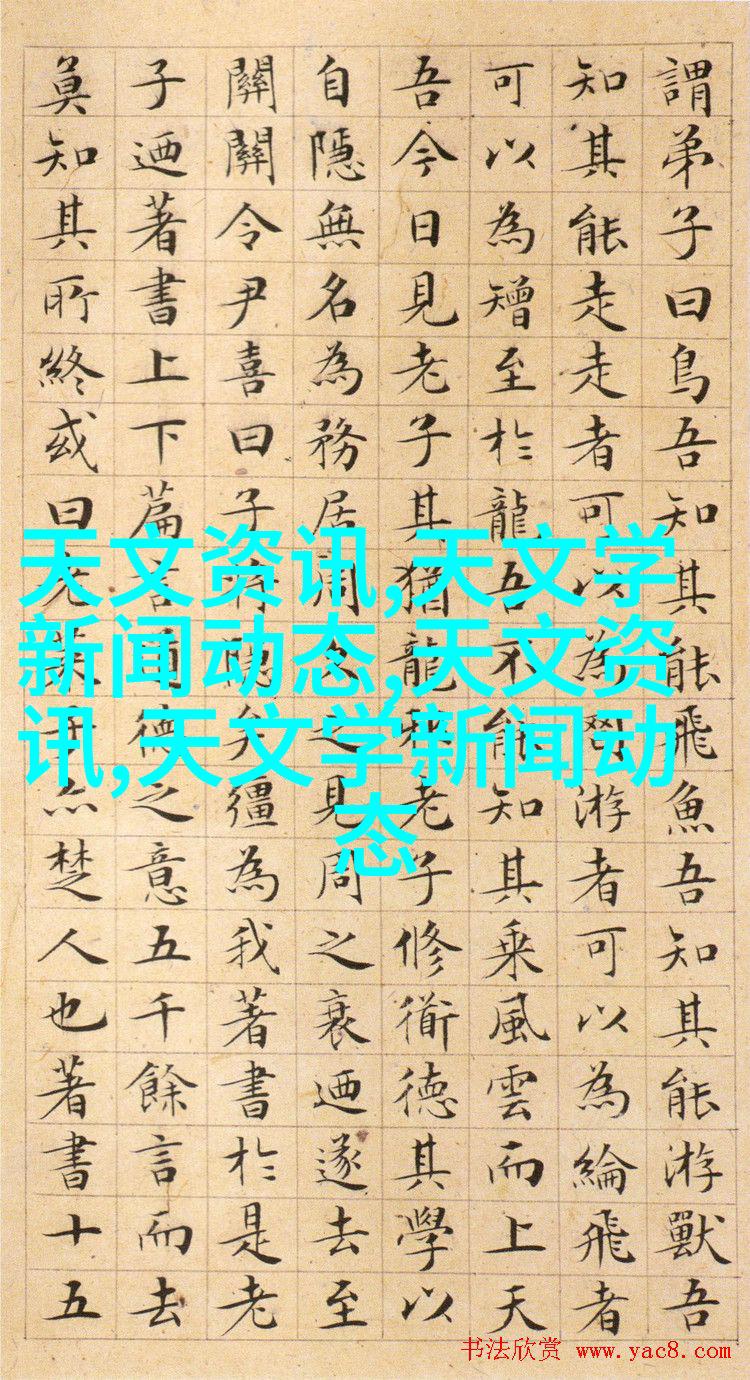 謂弟子曰鳥吾知其能飛魚吾知其能游獸吾
知其能走走者可以為罔游者可以為綸飛者
可以為矰至於龍吾不能知其乗風雲而上天
吾今日見老子其猶龍邪老子修衜德其學以
自隱無名為務居周久之見周之衰迺遂去至
關關令尹喜曰子將隱矣彊為我著書於是老
子迺著書上下篇言道德之意五千餘言而去
莫知其所終或曰老萊子亦楚人也著書十五
天文资讯,天文学
新闻动态,天文资
讯,天文学新闻动
态
书法欣赏 www.yac8.com